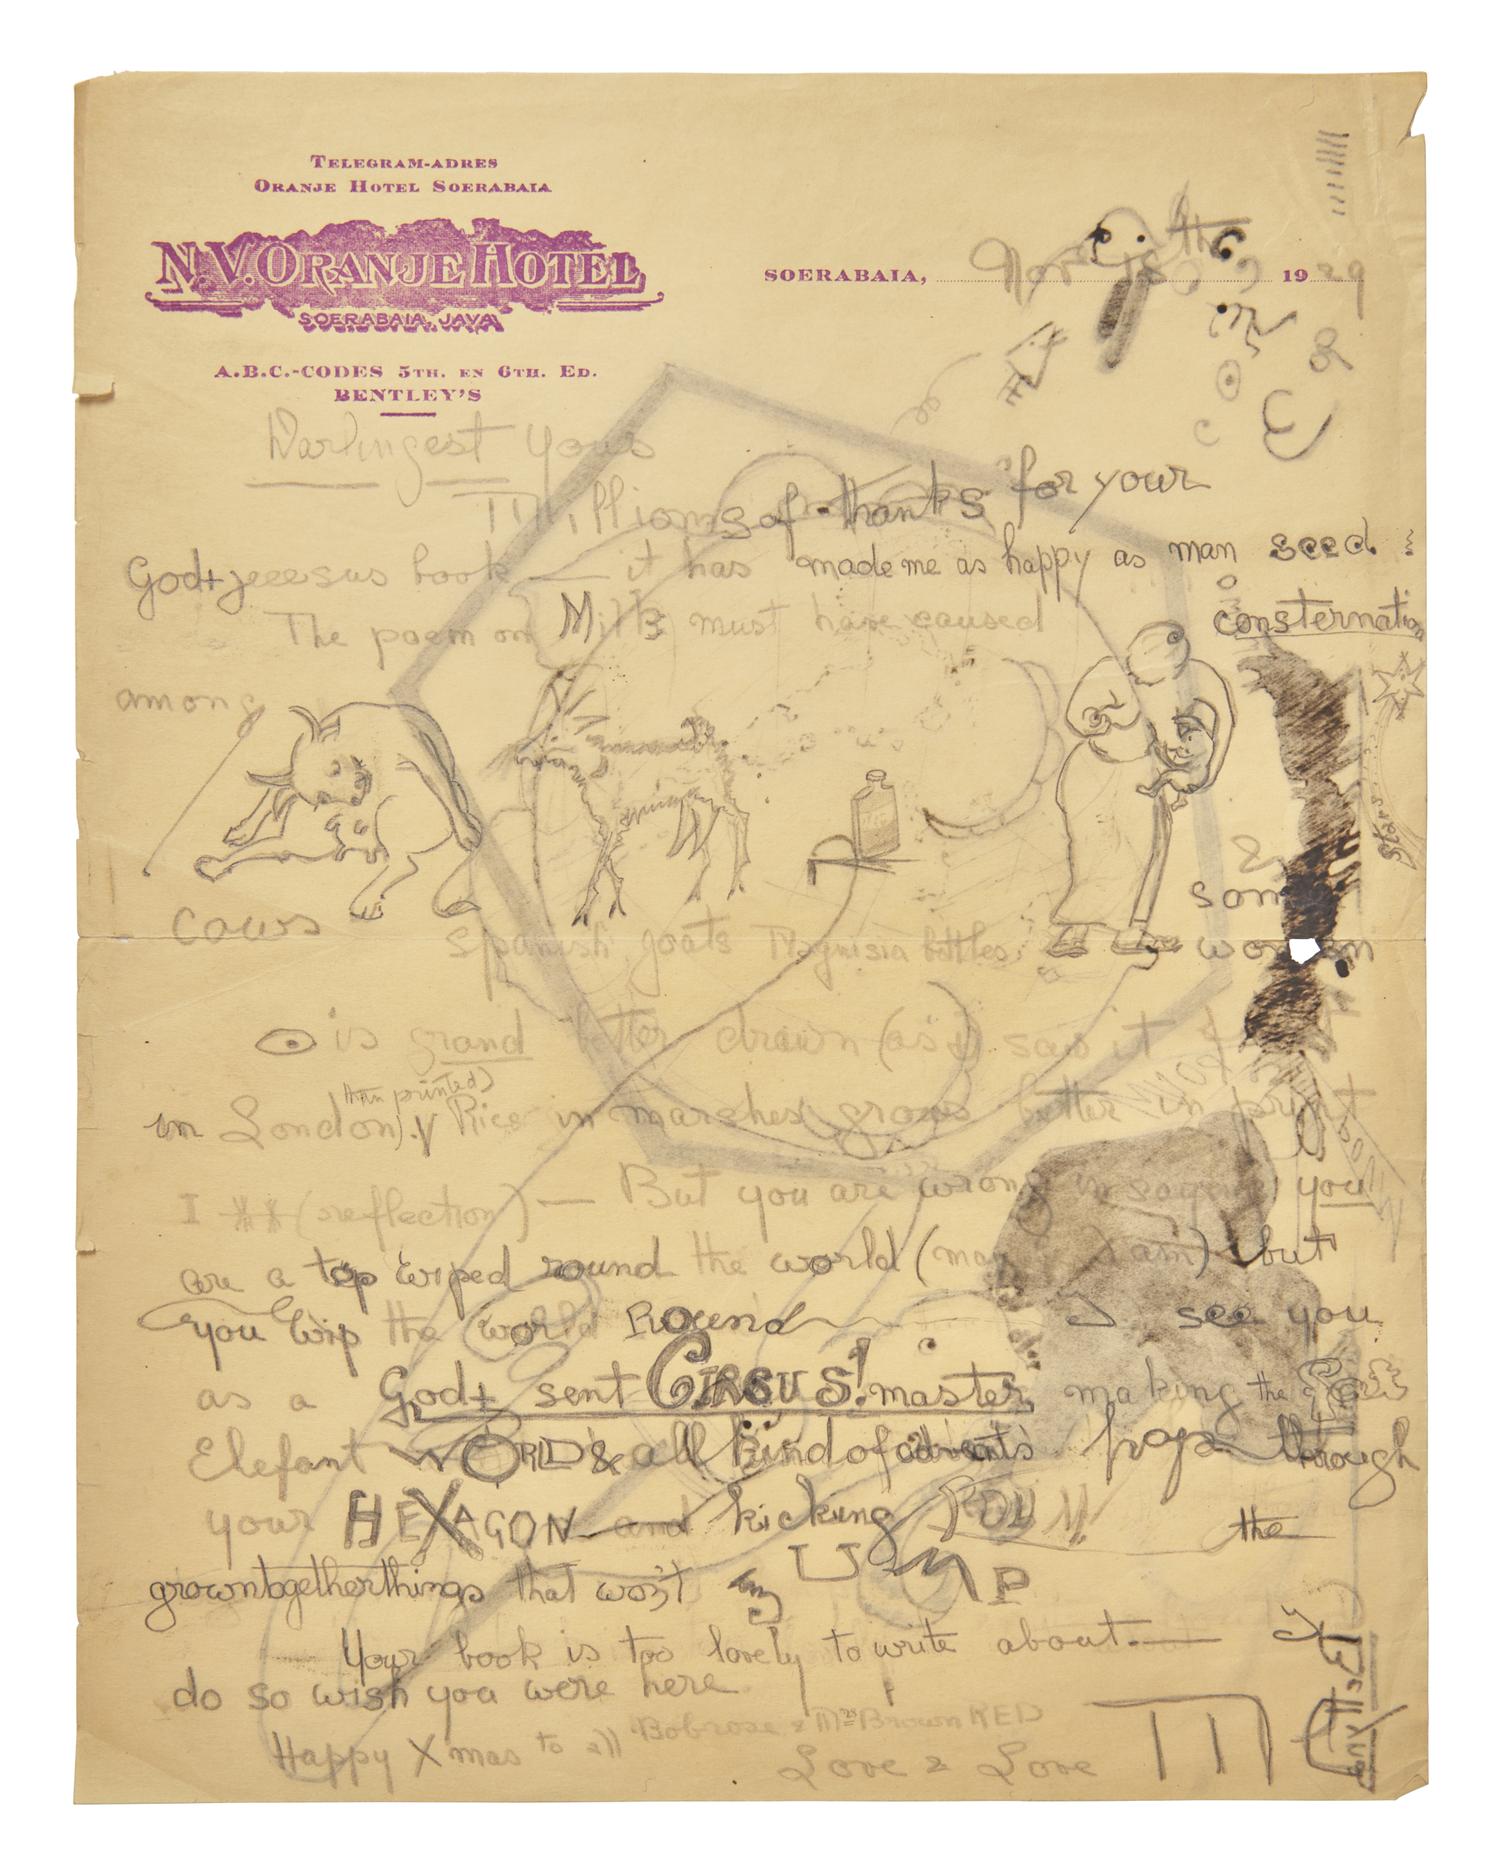 TELEGRAM-ADRES
ORANJE HOTEL SOERABAIA
N.V. ORANJE HOTEL
SOERABAIA, JAVA
A.B.C.-CODES 5TH. EN 6TH. ED.
BENTLEY'S
SOERABAIA, Nov 19 29
Darlingest
Millions of thanks for your
God+jeeesus book — it has made me as happy as man seed
The poem on Milk must have caused consternation
among
Stars
cows Spanish goats Magnisia bottles & some women
is grand better drawn (as I saw it
in London) than printed). Rice in marshes grows better in print
I (reflection) — But you are wrong in saying you
are a top wiped round the world (man I am) but
you wip the world Round I see you
as a God+ sent CIRSUS! master making the
Elefant WORLD & all kind of hop through
your HEXAGON and kicking the
growntogetherthings that won't JUMP
Your book is too lovely to write about —
do so wish you were here
Happy Xmas to all Bobrose & Mrs Brown RED
Love & Love